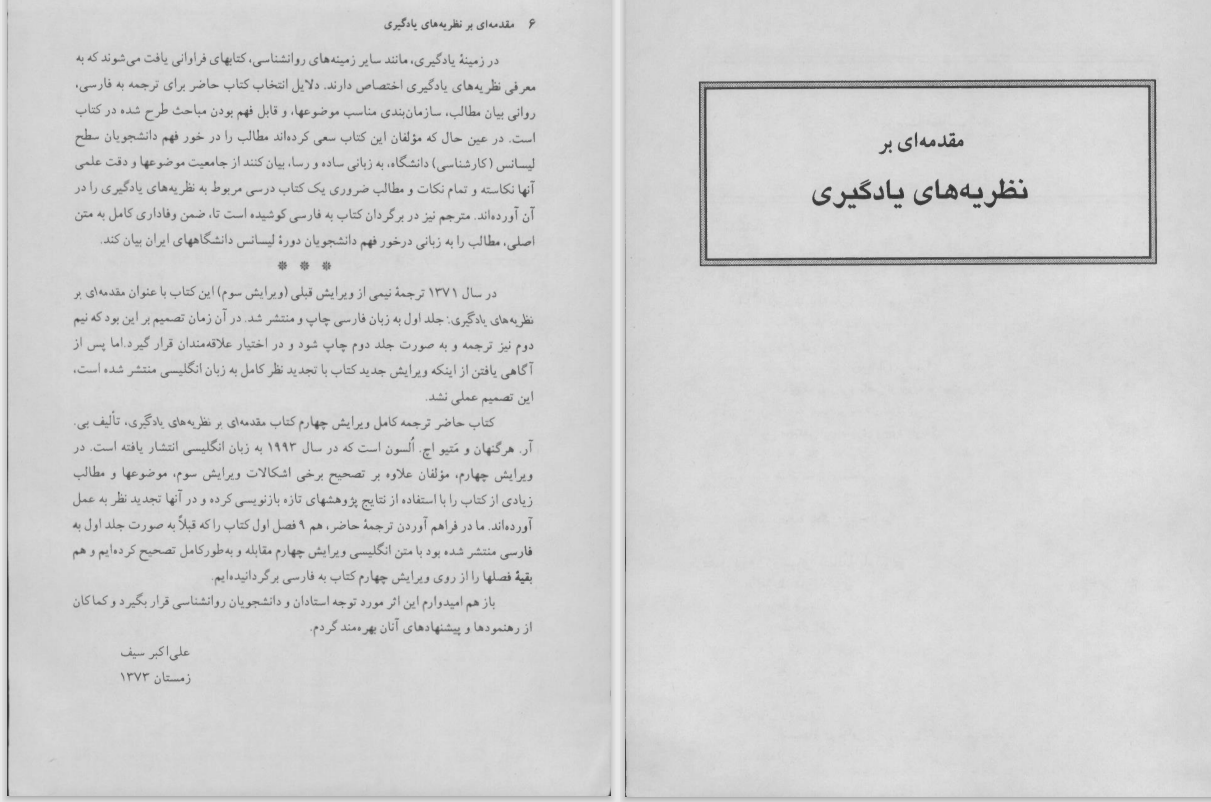 مقدمه‌ای بر
نظریه‌های یادگیری
۶ مقدمه‌ای بر نظریه‌های یادگیری
در زمینهٔ یادگیری، مانند سایر زمینه‌های روانشناسی، کتابهای فراوانی یافت می‌شوند که به
معرفی نظریه‌های یادگیری اختصاص دارند. دلایل انتخاب کتاب حاضر برای ترجمه به فارسی،
روانی بیان مطالب، سازمان‌بندی مناسب موضوعها، و قابل فهم بودن مباحث طرح شده در کتاب
است. در عین حال که مؤلفان این کتاب سعی کرده‌اند مطالب را در خور فهم دانشجویان سطح
لیسانس (کارشناسی) دانشگاه، به زبانی ساده و رسا، بیان کنند از جامعیت موضوعها و دقت علمی
آنها نکاسته و تمام نکات و مطالب ضروری یک کتاب درسی مربوط به نظریه‌های یادگیری را در
آن آورده‌اند. مترجم نیز در برگردان کتاب به فارسی کوشیده است تا، ضمن وفاداری کامل به متن
اصلی، مطالب را به زبانی درخور فهم دانشجویان دورهٔ لیسانس دانشگاههای ایران بیان کند.
* * *
در سال ۱۳۷۱ ترجمهٔ نیمی از ویرایش قبلی (ویرایش سوم) این کتاب با عنوان مقدمه‌ای بر
نظریه‌های یادگیری: جلد اول به زبان فارسی چاپ و منتشر شد. در آن زمان تصمیم بر این بود که نیم
دوم نیز ترجمه و به صورت جلد دوم چاپ شود و در اختیار علاقه‌مندان قرار گیرد.اما پس از
آگاهی یافتن از اینکه ویرایش جدید کتاب با تجدید نظر کامل به زبان انگلیسی منتشر شده است،
این تصمیم عملی نشد.
کتاب حاضر ترجمه کامل ویرایش چهارم کتاب مقدمه‌ای بر نظریه‌های یادگیری، تألیف بی.
آر. هرگنهان و مَتیو اچ. اُلسون است که در سال ۱۹۹۳ به زبان انگلیسی انتشار یافته است. در
ویرایش چهارم، مؤلفان علاوه بر تصحیح برخی اشکالات ویرایش سوم، موضوعها و مطالب
زیادی از کتاب را با استفاده از نتایج پژوهشهای تازه بازنویسی کرده و در آنها تجدید نظر به عمل
آورده‌اند. ما در فراهم آوردن ترجمهٔ حاضر، هم ۹ فصل اول کتاب را که قبلاً به صورت جلد اول به
فارسی منتشر شده بود با متن انگلیسی ویرایش چهارم مقابله و به‌طورکامل تصحیح کرده‌ایم و هم
بقیهٔ فصلها را از روی ویرایش چهارم کتاب به فارسی برگردانیده‌ایم.
باز هم امیدوارم این اثر مورد توجه استادان و دانشجویان روانشناسی قرار بگیرد و کماکان
از رهنمودها و پیشنهادهای آنان بهره‌مند گردم.
علی‌اکبر سیف
زمستان ۱۳۷۳